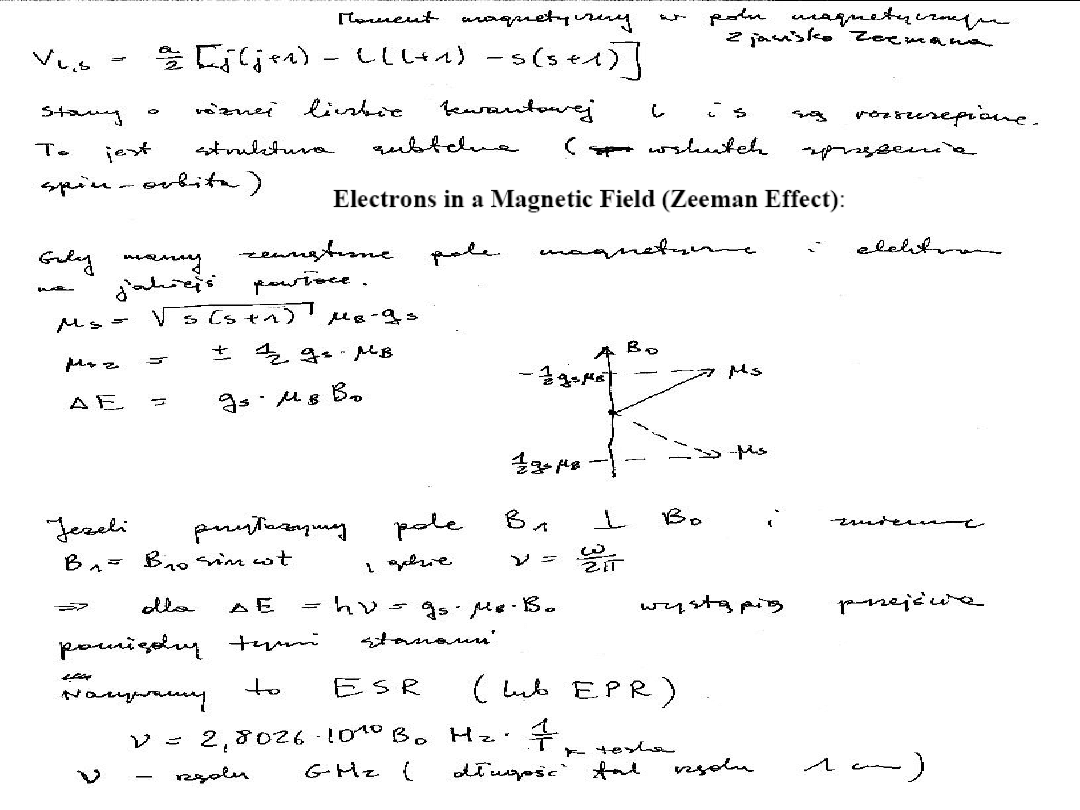 Moment magnetyczny w polu magnetycznym
Zjawisko Zeemana
V_{l,s} = a/2 [j(j+1) - l(l+1) - s(s+1)]
Stany o różnej liczbie kwantowej l i s są rozszczepione.
To jest struktura subtelna ( wskutek sprzężenia
spin-orbita)
Electrons in a Magnetic Field (Zeeman Effect):
Gdy mamy zewnętrzne pole magnetyczne i elektron
na jakiejś powłoce.
μ_s = √s(s+1) μ_B·g_s
μ_{sz} = ± 1/2 g_s·μ_B
ΔE = g_s·μ_B B_0
B_0
-1/2 g_s μ_B
μ_s
1/2 g_s μ_B
μ_s
Jeżeli przyłożymy pole B_1 ⊥ B_0 i zmienne
B_1 = B_{10} sin ωt , gdzie ν = ω/2π
=> dla ΔE = hν = g_s·μ_B·B_0 wystąpią przejścia
pomiędzy tymi stanami
Nazywamy to ESR (lub EPR)
ν = 2,8026·10^{10} B_0 Hz · 1/T tesla
ν - rzędu GHz ( długość fal rzędu 1 cm)